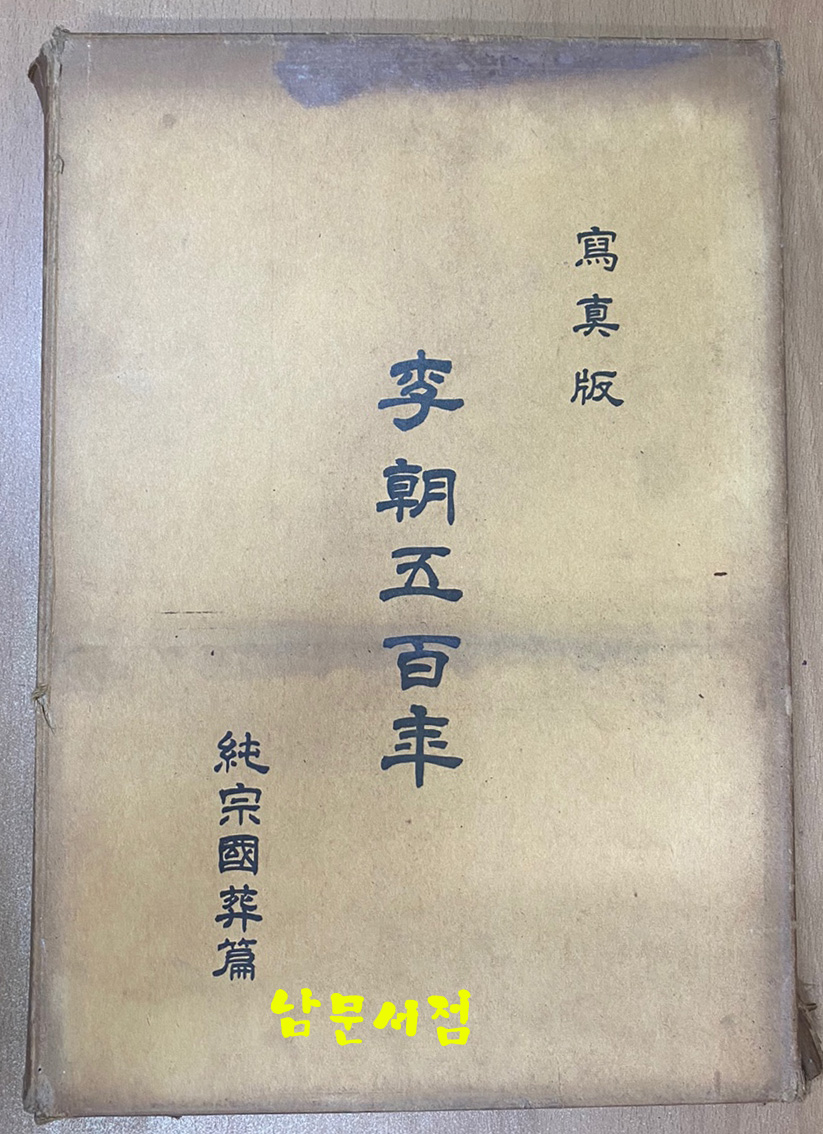 寫真版
李朝五百年
純宗國葬篇
남문서점